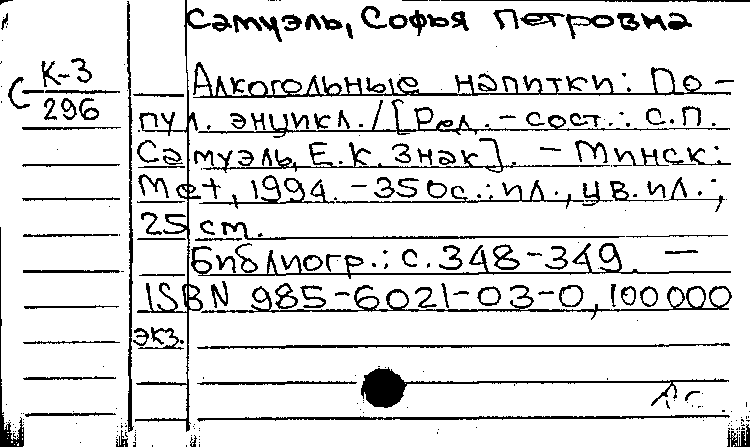 Самуэль, Софья Петровна
С К-3
296
Алкогольные напитки: По-
пул. энцикл./[Ред.-сост.: С.П.
Самуэль, Е.К. Знак]. - Минск:
Мет, 1994. - 350с.: ил., цв.ил.;
25 см.
Библиогр.: с. 348-349. -
ISBN 985-6021-03-0, 100000
экз.